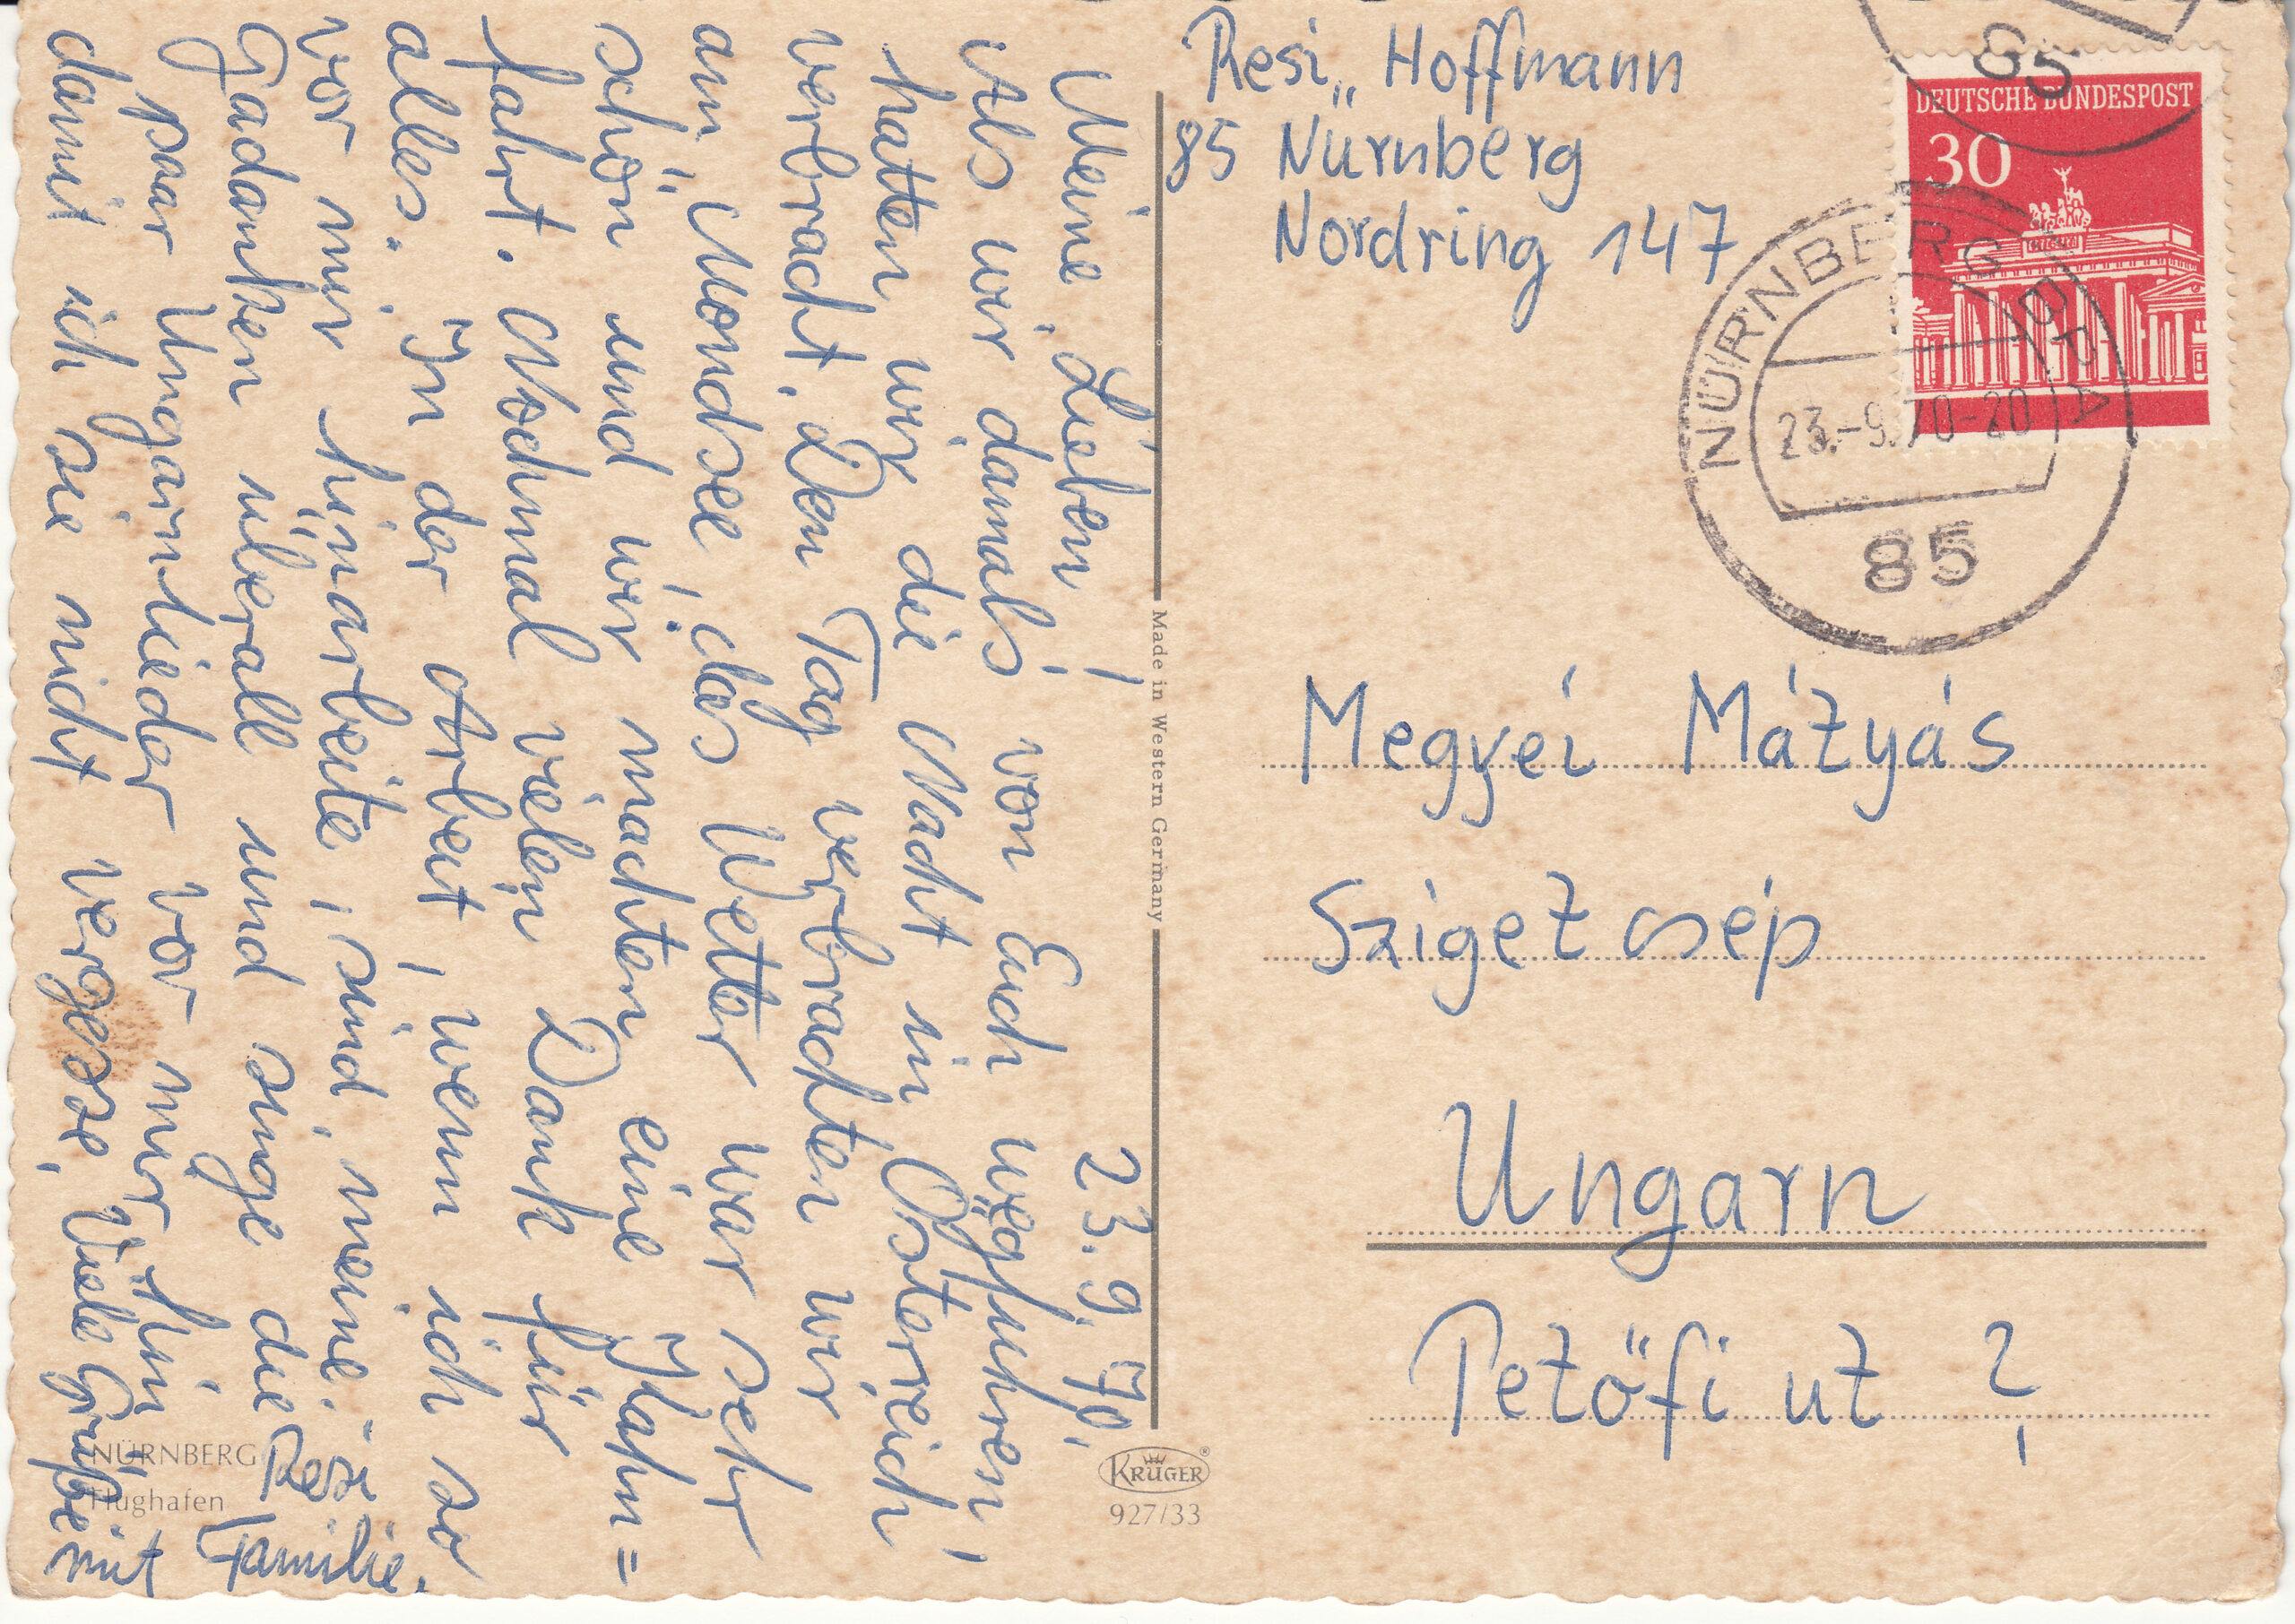 Resi„ Hoffmann
85 Nürnberg
Nordring 147
85
DEUTSCHE BUNDESPOST
30
NÜRNBERG BPA
23.-9.70-20
85
Megyei Mátyás
Szigetcsép
Ungarn
Petöfi ut ?
Made in Western Germany
KRÜGER
927/33
NÜRNBERG
Flughafen
23. 9. 70.
Meine Lieben!
Als wir damals von Euch wegfuhren,
hatten wir die Nacht in Österreich
verbracht. Den Tag verbrachten wir
am Mondsee, das Wetter war sehr
schön und wir machten eine Kahn=
fahrt. Nochmal vielen Dank für
alles. In der Arbeit, wenn ich so
vor mir hinarbeite, sind meine
Gedanken überall und singe die
paar Ungarnlieder vor mir hin
damit ich sie nicht vergesse. Viele Grüße mit
Familie.